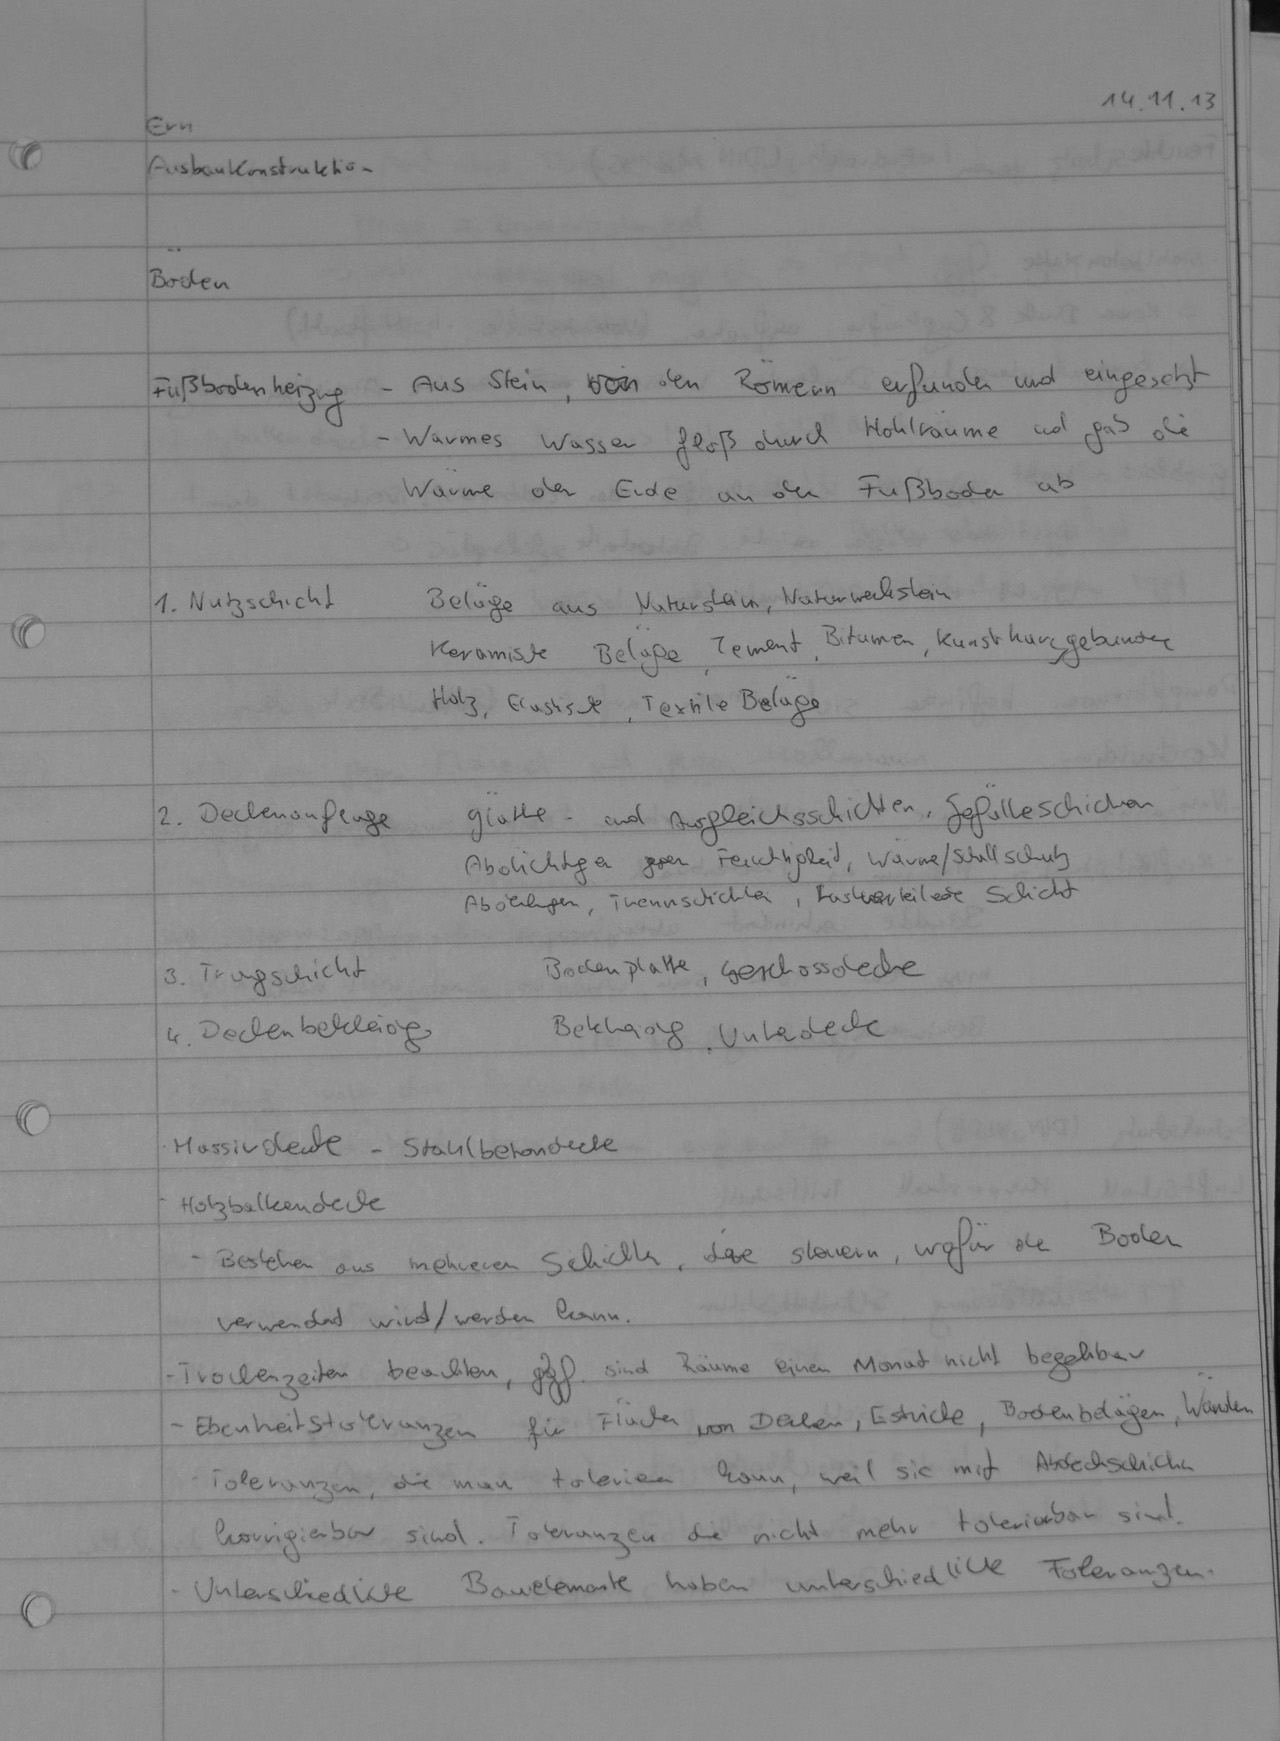 14.11.13
Ern
Ausbaukonstruktion
Böden
Fußbodenheizung - Aus Stein, von den Römern erfunden und eingesetzt
- Warmes Wasser floß durch Hohlräume und gab die
Wärme der Erde an den Fußboden ab
1. Nutzschicht Beläge aus Naturstein, Naturwerkstein
Keramische Beläge, Zement, Bitumen, Kunstharzgebundene
Holz, Elastische, Textile Beläge
2. Deckenauflage Glätte- und Ausgleichsschichten, Gefälleschichten
Abdichtungen gegen Feuchtigkeit, Wärme/Schallschutz
Abdeckungen, Trennschichten, Lastverteilende Schicht
3. Tragschicht Bodenplatte, Geschossdecke
4. Deckenbekleidung Bekleidung, Unterdecke
· Massivdecke - Stahlbetondecke
- Holzbalkendecke
- Bestehen aus mehreren Schichten, die steuern, wofür der Boden
verwendet wird/werden kann.
- Trockenzeiten beachten, ggf. sind Räume einen Monat nicht begehbar
- Ebenheitstoleranzen für Flächen von Decken, Estriche, Bodenbelägen, Wänden
- Toleranzen, die man tolerieren kann, weil sie mit Abdeckschichten
korrigierbar sind. Toleranzen die nicht mehr tolerierbar sind.
- Unterschiedliche Bauelemente haben unterschiedliche Toleranzen.